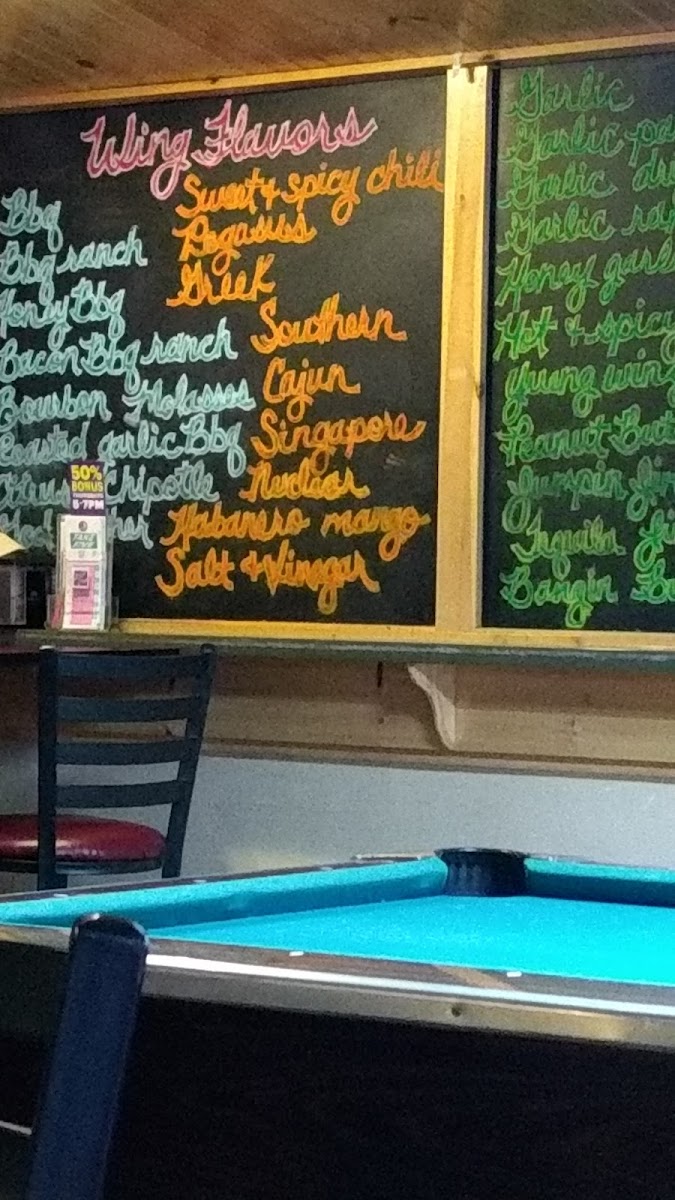 Wing Flavors
Bbq
Bbq ranch
Honey Bbq
Bacon Bbq ranch
Bourbon Molasses
Roasted garlic Bbq
Chipotle
Sweet & spicy chili
Pegasus
Greek
Southern
Cajun
Singapore
Nuclear
Habanero mango
Salt & Vinegar
Garlic
Garlic
Garlic
Garlic
Honey
Hot & spicy
Yuung wing
Peanut
Jumpin
Tequila
Bangin
50%
BONUS
5-7PM